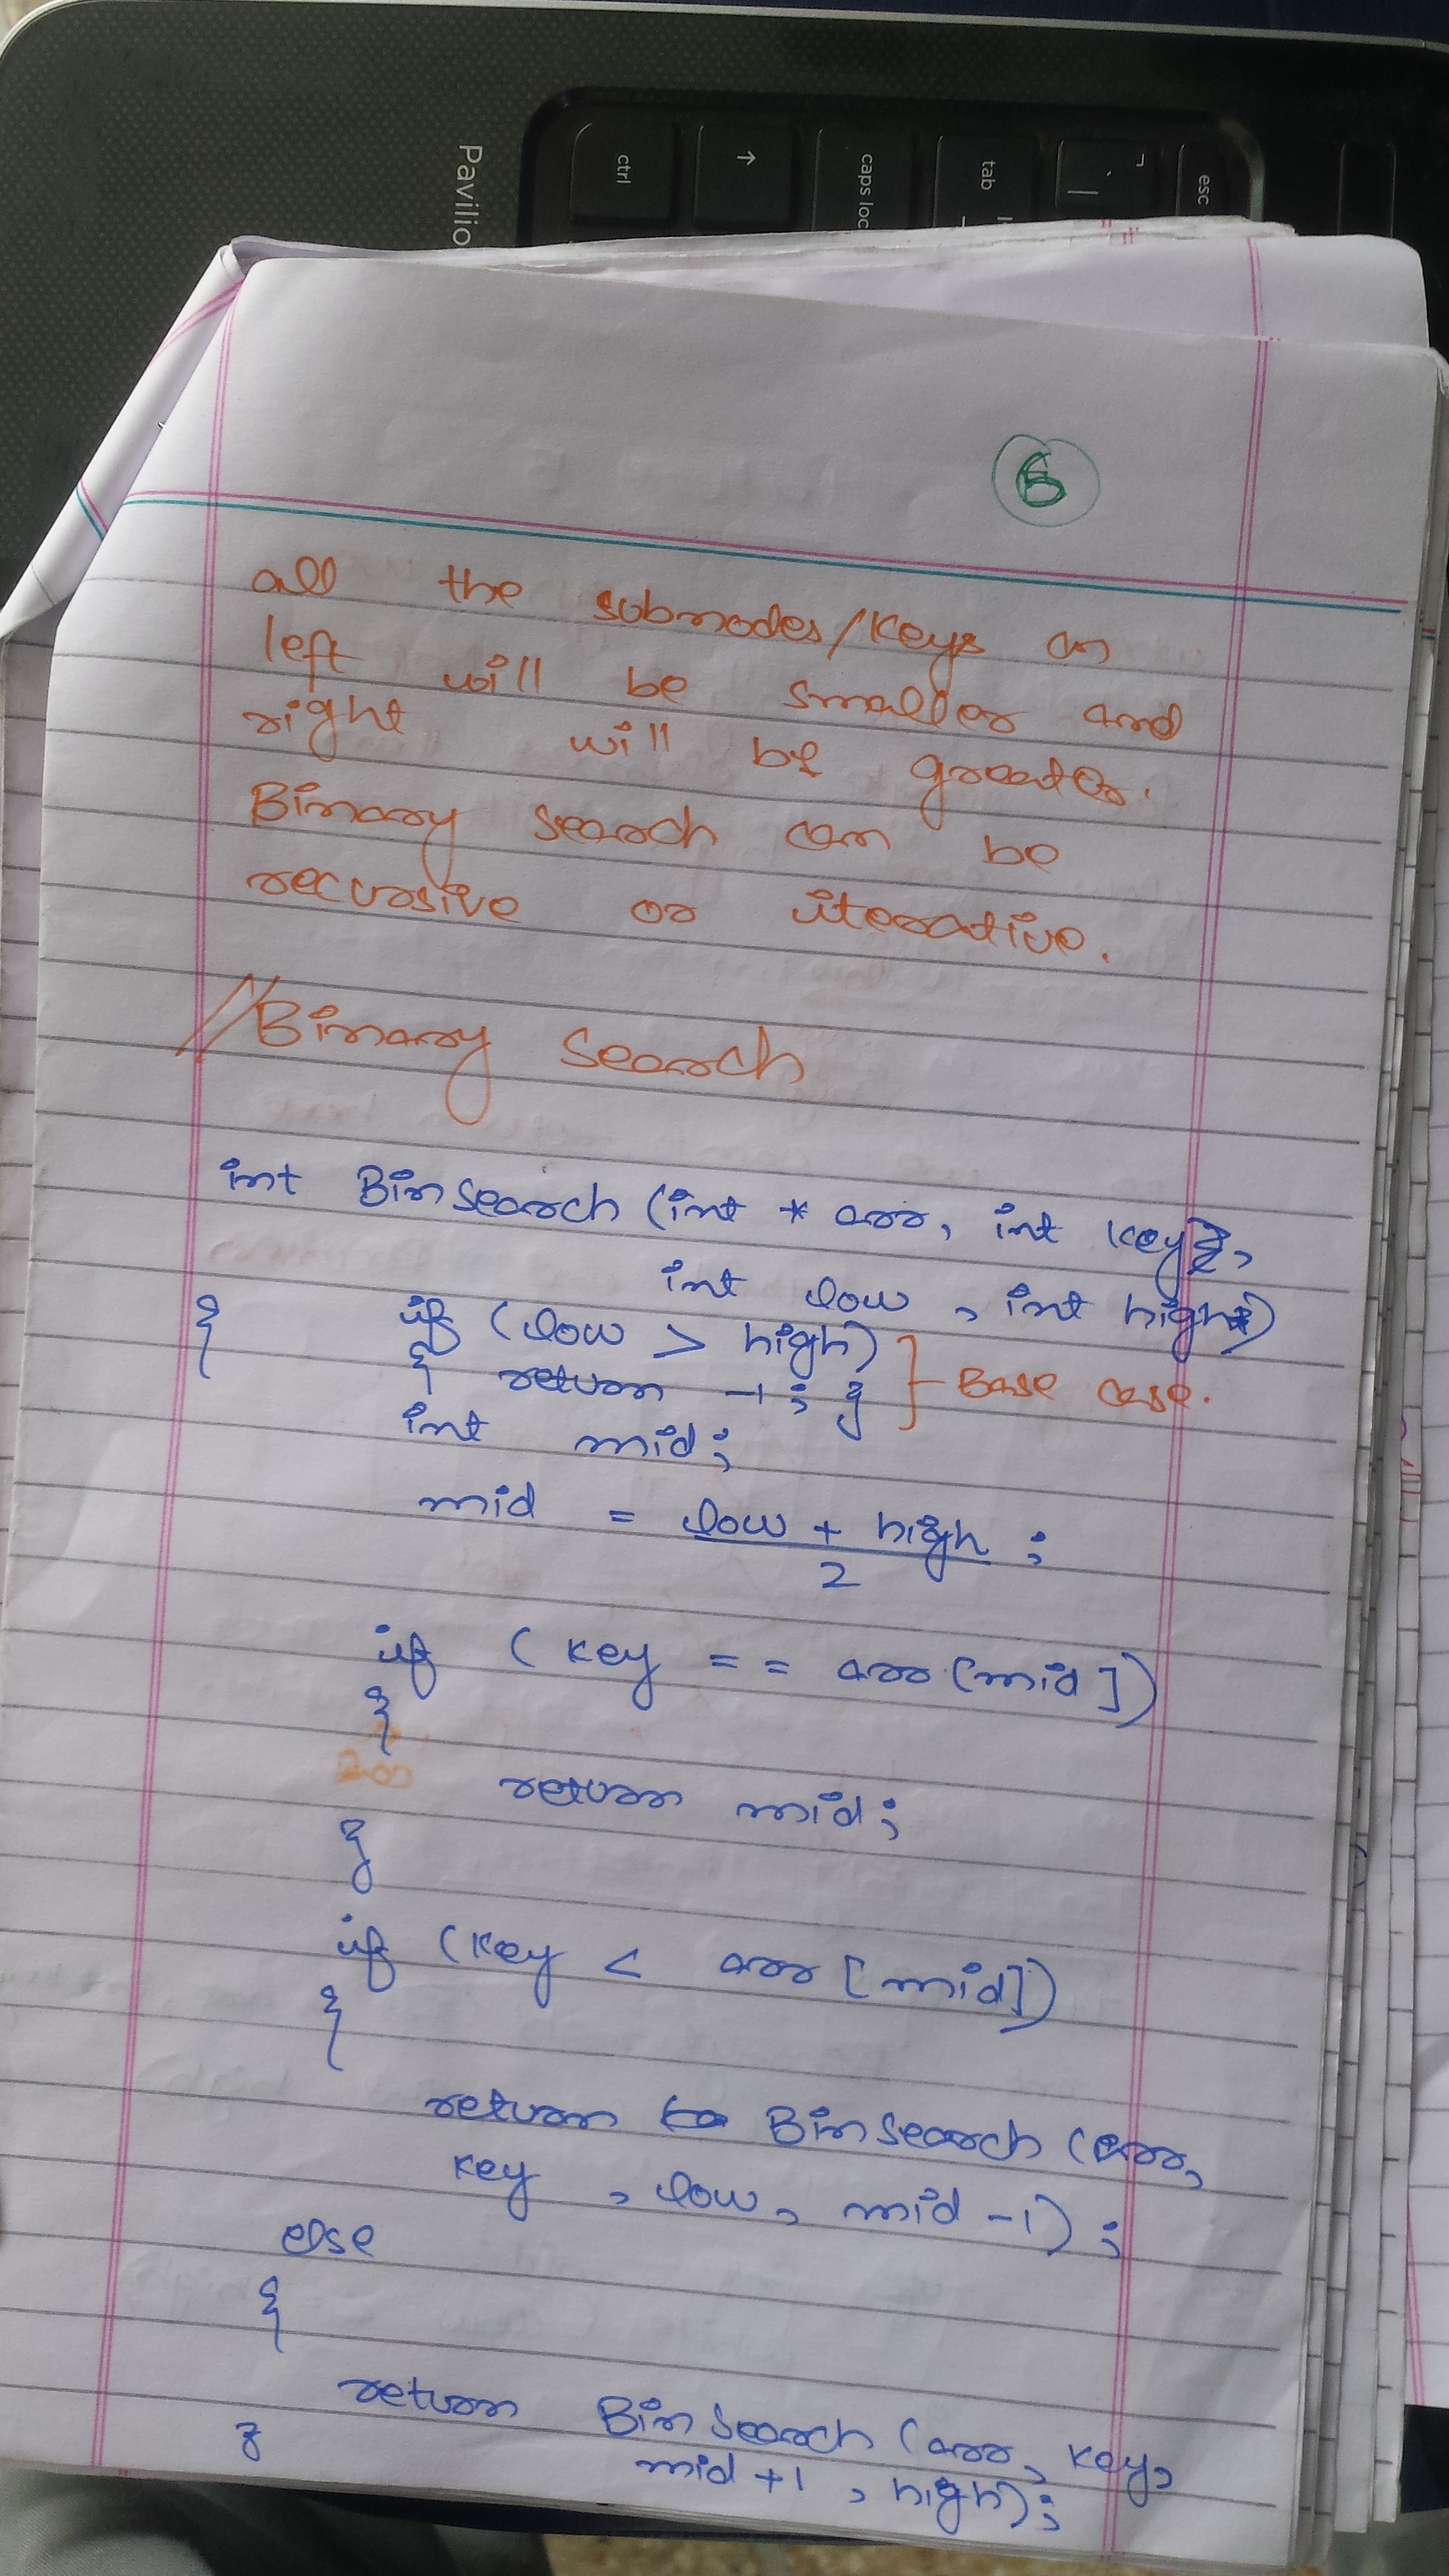 Pavilio
ctrl
↑
caps loc
tab
esc
6
all the subnodes/keys on
left will be smaller and
right will be greater.
Binary search can be
recursive or iterative.
//Binary Search
int BinSearch (int * arr, int key,
int low, int high)
{ if (low > high)
{ return -1; } Base case.
int mid;
mid = low + high ;
2
if (key == arr[mid])
{
return mid;
}
if (key < arr[mid])
{
return BinSearch (arr,
key, low, mid -1);
else
{
return BinSearch (arr, key,
} mid +1, high);